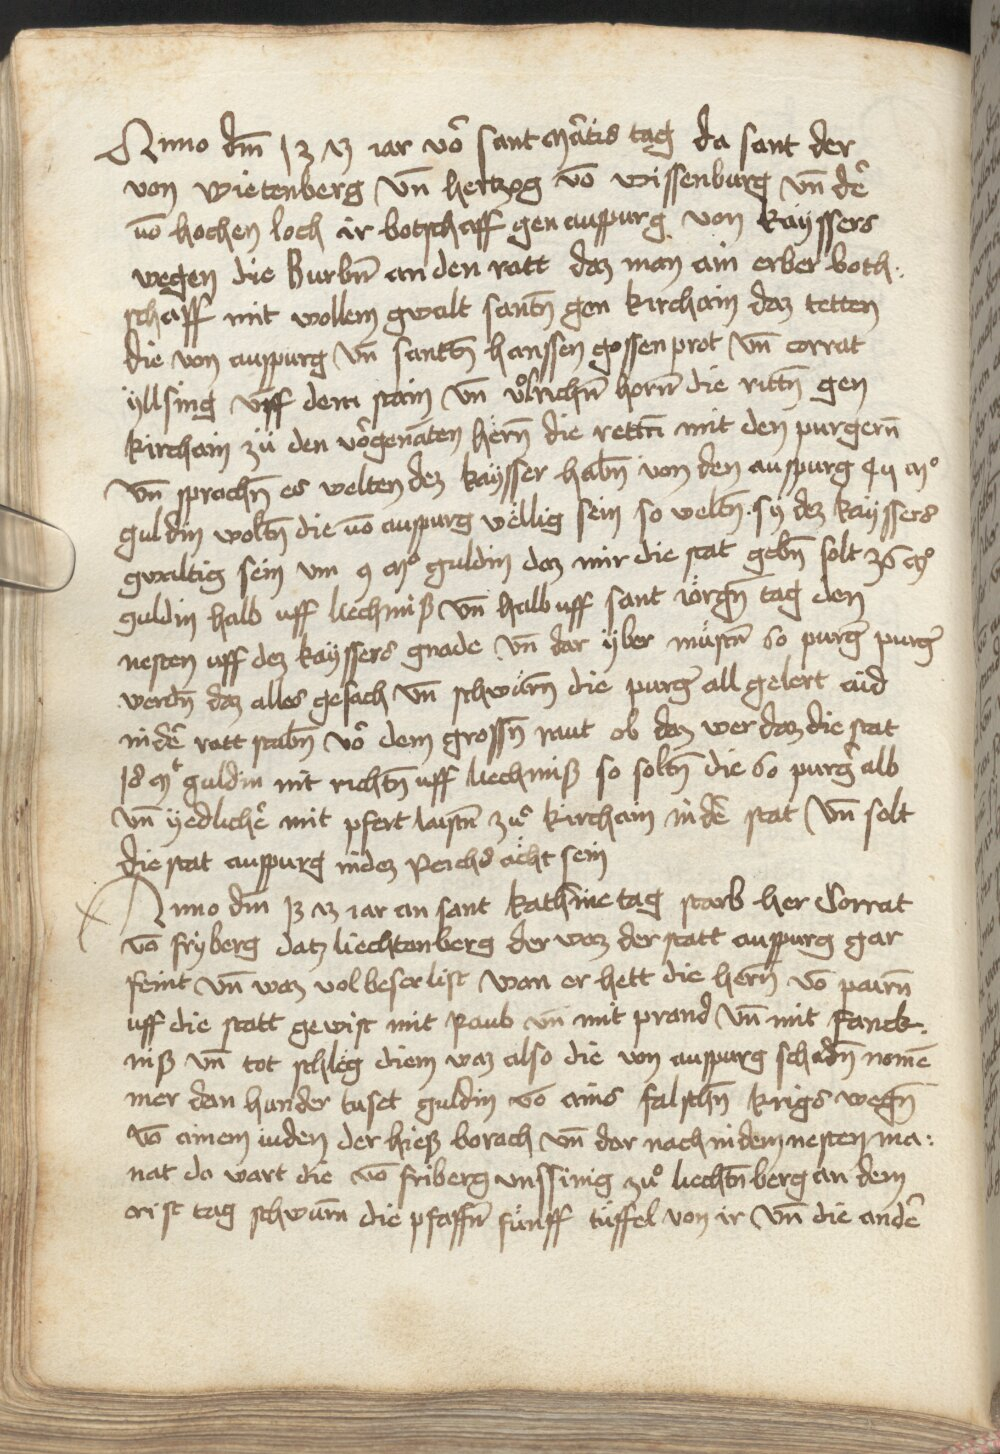 Anno dm̄ 13 73 iar vō sant mātis tag da sant der
von Wietenberg vn̄ hertzog vō wissenburg vn̄ dē
vō hochen loch ir botschaff gen auspurg von kayssers
wegen die burbn̄ an den ratt daz man ain erber both:
schaff mit wollem gwalt santn̄ gen kirchain daz tetten
die von auspurg vn̄ santtn̄ hanssen gossenprot vn̄ corrat
ÿllsing vff dem stain vn̄ vͦlrichn̄ horn̄ die rittn̄ gen
kirchain zuͤ den vōgenāten hern̄ die rettn̄ mit den purgern̄
vn̄ sprachn̄ es welten dez kaysser habn̄ von den auspurg
guldin woltn̄ die vō auspurg vellig sein so weltn̄ sy dez kayssers
gwaltig sein vm guldin daz mir die stat gebn̄ solt
guldin halb uff liechmiß vn̄ halb uff sant iörgn̄ tag den
nesten uff dez kayssers gnade vn̄ dar ÿber muͤstn̄ 60 purgr̄ purgr̄
werdn̄ daz alles gesach vn̄ schwarn̄ die purgr̄ all gelert aid
in dē rott stabn̄ vō dem grossn̄ raut ob daz wer daz die stat
guldin nit richtn̄ uff liechmiß so soltn̄ die 60 purgr̄ alb
vn̄ ÿedlichē mit pfert laistn̄ zuͦ kirchain in dē stat vn̄ solt
die stat auspurg in dez Reichs ächt sein
Anno dm̄ 13 73 iar an sant kathrine tag starb her Corrat
vō fryberg datz liechtenberg der waz der statt auspurg gar
feint vn̄ waz vol beser list wan er hett die hern̄ vō pairn̄
uff die statt gewist mit Raub vn̄ mit prand vn̄ mit fanck:
niß vn̄ tot schleg diem waz also die von auspurg schadn̄ nomē
mer dan hunder tuset guldin vō ains falschn̄ krigs wegn̄
vō ainem iuden der hieß borach vn̄ dar nach in dem nesten ma:
nat da wart die vō friberg unssinig zuͦ liechtn̄berg an dem
crist tag schwurn̄ die pfaffn̄ fünff tüffel von ir vn̄ die andē